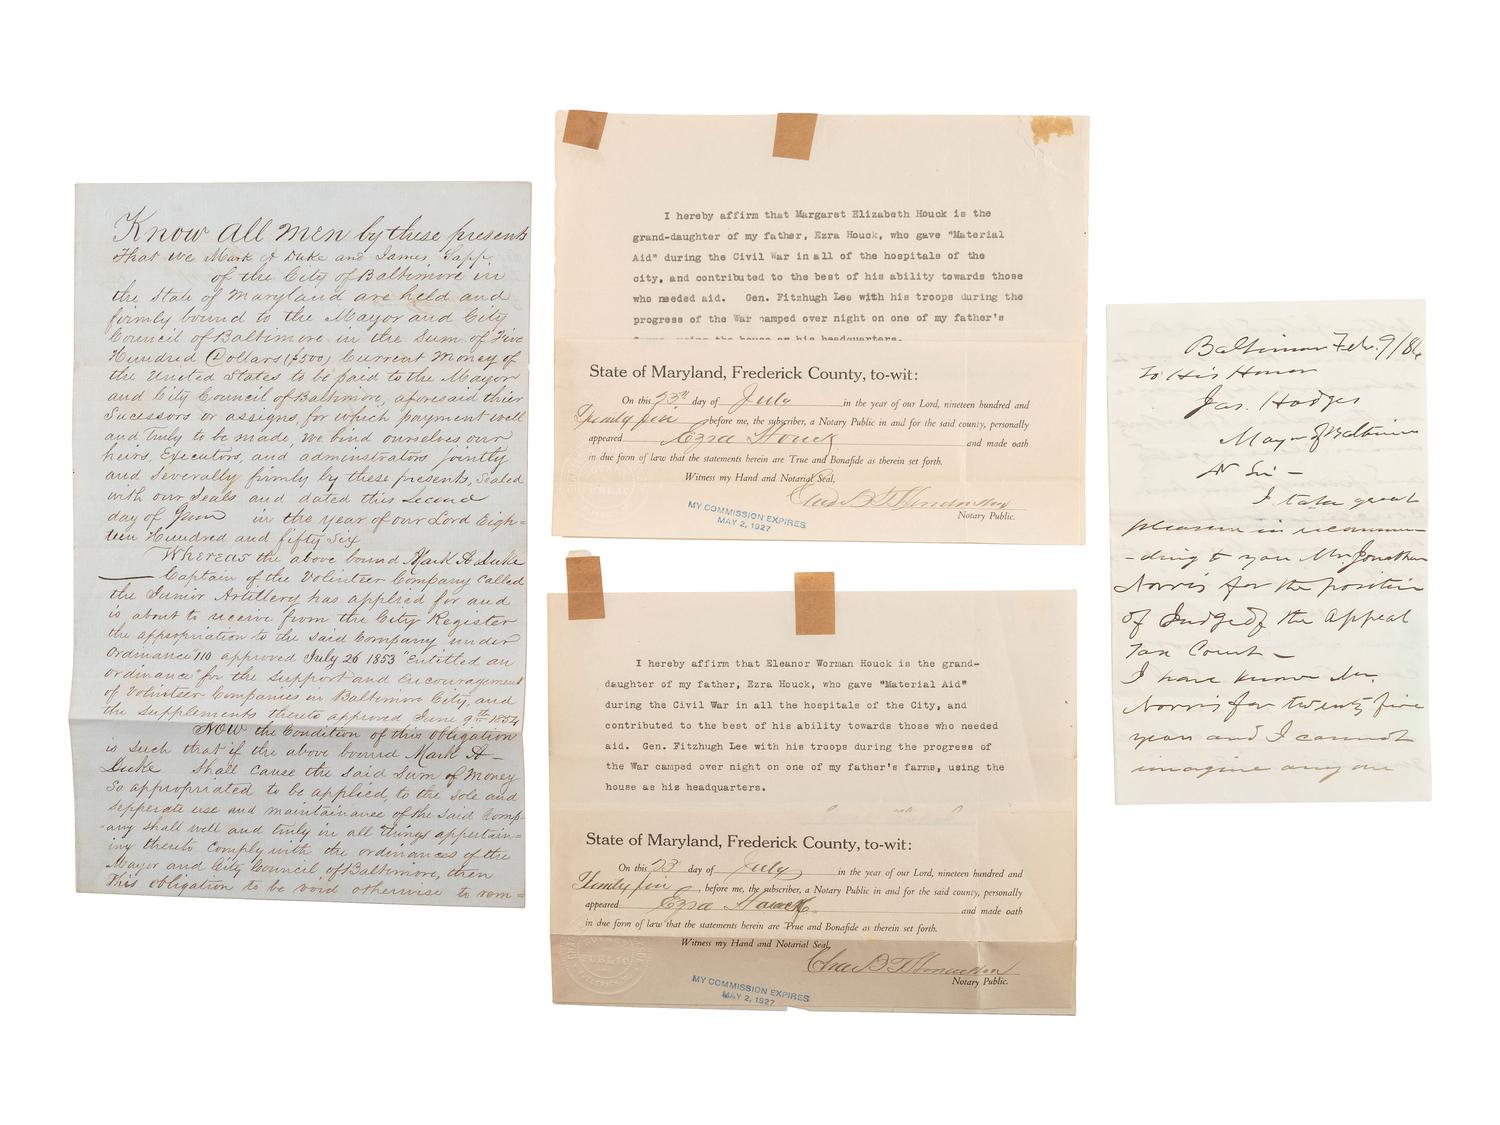 Know All Men by these presents
that we Mark A Duke and James Sapp
of the City of Baltimore in
the State of Maryland are held and
firmly bound to the Mayor and City
Council of Baltimore in the Sum of Five
Hundred Dollars ($500) Current Money of
the United States to be paid to the Mayor
and City Council of Baltimore, aforesaid thier
Sucessors or assigns, for which payment well
and truly to be made, we bind ourselves our
heirs, Executors, and adminstrators jointly
and severally firmly by these presents, Sealed
with our Seals and dated this Second
day of June in the year of our Lord Eigh=
teen Hundred and fifty Six
Whereas the above bound Mark A Duke
Captain of the Volunteer Company called
the Junior Artillery has applied for and
is about to receive from the City Register
the appropriation to the said Company under
Ordinance 110 approved July 26 1853 "Entitled an
ordinance" for the support and Encouragement
of Volunteer Companies in Baltimore City, and
the supplements thereto approved June 9th 1854
Now the Condition of this obligation
is such that if the above bound Mark A
Duke Shall Cause the said Sum of Money
So appropriated to be applied, to the sole and
sepperate use and maintainance of the said Comp=
-any shall well and truly in all things appertain=
ing thereto Comply with the ordinances of the
Mayor and City Council of Baltimore, then
this obligation to be void otherwise to rem=
I hereby affirm that Margaret Elizabeth Houck is the
grand-daughter of my father, Ezra Houck, who gave "Material
Aid" during the Civil War in all of the hospitals of the
city, and contributed to the best of his ability towards those
who needed aid. Gen. Fitzhugh Lee with his troops during the
progress of the War camped over night on one of my father's
farms, using the house as his headquarters.
State of Maryland, Frederick County, to-wit:
On this 23rd day of July in the year of our Lord, nineteen hundred and
Twenty five before me, the subscriber, a Notary Public in and for the said county, personally
appeared Ezra Houck and made oath
in due form of law that the statements herein are True and Bonafide as therein set forth.
Witness my Hand and Notarial Seal,
PUBLIC
Notary Public.
MY COMMISSION EXPIRES
MAY 2, 1927
I hereby affirm that Eleanor Worman Houck is the grand-
daughter of my father, Ezra Houck, who gave "Material Aid"
during the Civil War in all the hospitals of the City, and
contributed to the best of his ability towards those who needed
aid. Gen. Fitzhugh Lee with his troops during the progress of
the War camped over night on one of my father's farms, using the
house as his headquarters.
State of Maryland, Frederick County, to-wit:
On this 23 day of July in the year of our Lord, nineteen hundred and
Twenty five, before me, the subscriber, a Notary Public in and for the said county, personally
appeared Ezra Houck and made oath
in due form of law that the statements herein are True and Bonafide as therein set forth.
Witness my Hand and Notarial Seal,
PUBLIC
Notary Public.
MY COMMISSION EXPIRES
MAY 2, 1927
Baltimore Feb. 9/86
To His Honor
Jas. Hodges
Mayor of Baltimore
Dr Sir –
I take great
pleasure in recommen–
–ding to you Mr. Jonathan
Norris for the position
of Judge of the Appeal
Tax Court –
I have known Mr.
Norris for twenty five
years and I cannot
imagine any one